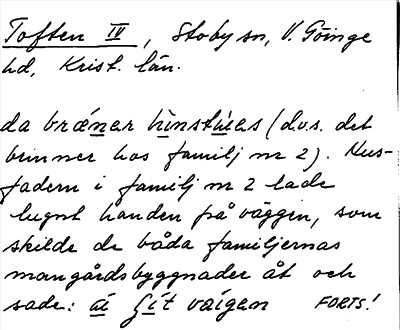 Toften IV, Stoby sn, V. Göinge
hd, Krist. län.
da bräner hinstúes (d.v.s. det
brinner hos familj nr 2). Hus-
fadern i familj nr 2 lade
lugnt handen på väggen, som
skilde de båda familjernas
mangårdsbyggnader åt och
sade: äi git väigen FORTS!